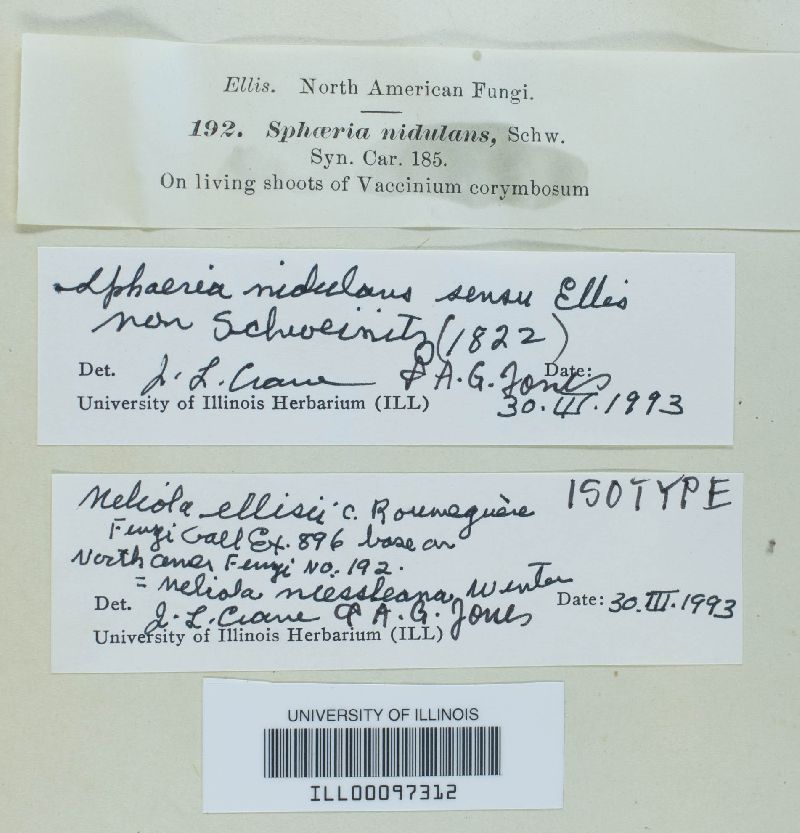 Ellis. North American Fungi.
192. Sphæria nidulans, Schw.
Syn. Car. 185.
On living shoots of Vaccinium corymbosum
Sphaeria nidulans sensu Ellis
non Schweinitz (1822)
Det. J. L. Crane & A. G. Jones Date:
University of Illinois Herbarium (ILL) 30.III.1993
Meliola ellisii C. Roumeguère ISOTYPE
Fungi Gall Ex. 896 base on
North Amer Fungi No. 192.
= Meliola niessleana Winter
Det. J. L. Crane & A. G. Jones Date: 30.III.1993
University of Illinois Herbarium (ILL)
UNIVERSITY OF ILLINOIS
ILL00097312